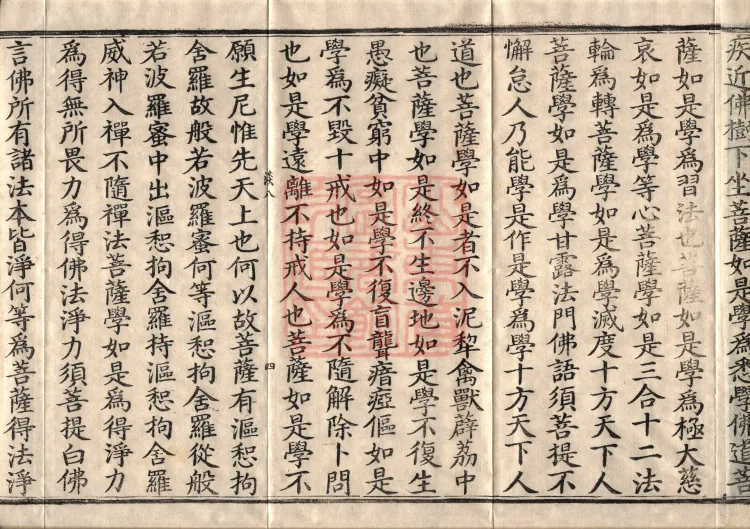 疾近佛樹下坐菩薩如是學爲悉學佛道菩
薩如是學爲習法也菩薩如是學爲極大慈
哀如是爲學等心菩薩學如是三合十二法
輪爲轉菩薩學如是爲學滅度十方天下人
菩薩學如是爲學甘露法門佛語須菩提不
懈怠人乃能學是作是學爲學十方天下人
道也菩薩學如是者不入泥犁禽獸薜荔中
也菩薩學如是終不生邊地如是學不復生
愚癡貧窮中如是學不復盲聾瘖瘂傴如是
學爲不毀十戒也如是學爲不隨解除卜問
也如是學遠離不持戒人也菩薩如是學不
願生尼惟先天上也何以故菩薩有漚惒拘
舍羅故般若波羅蜜何等漚惒拘舍羅從般
若波羅蜜中出漚惒拘舍羅持漚惒拘舍羅
威神入禪不隨禪法菩薩學如是爲得淨力
爲得無所畏力爲得佛法淨力須菩提白佛
言佛所有諸法本皆淨何等爲菩薩得法淨
四